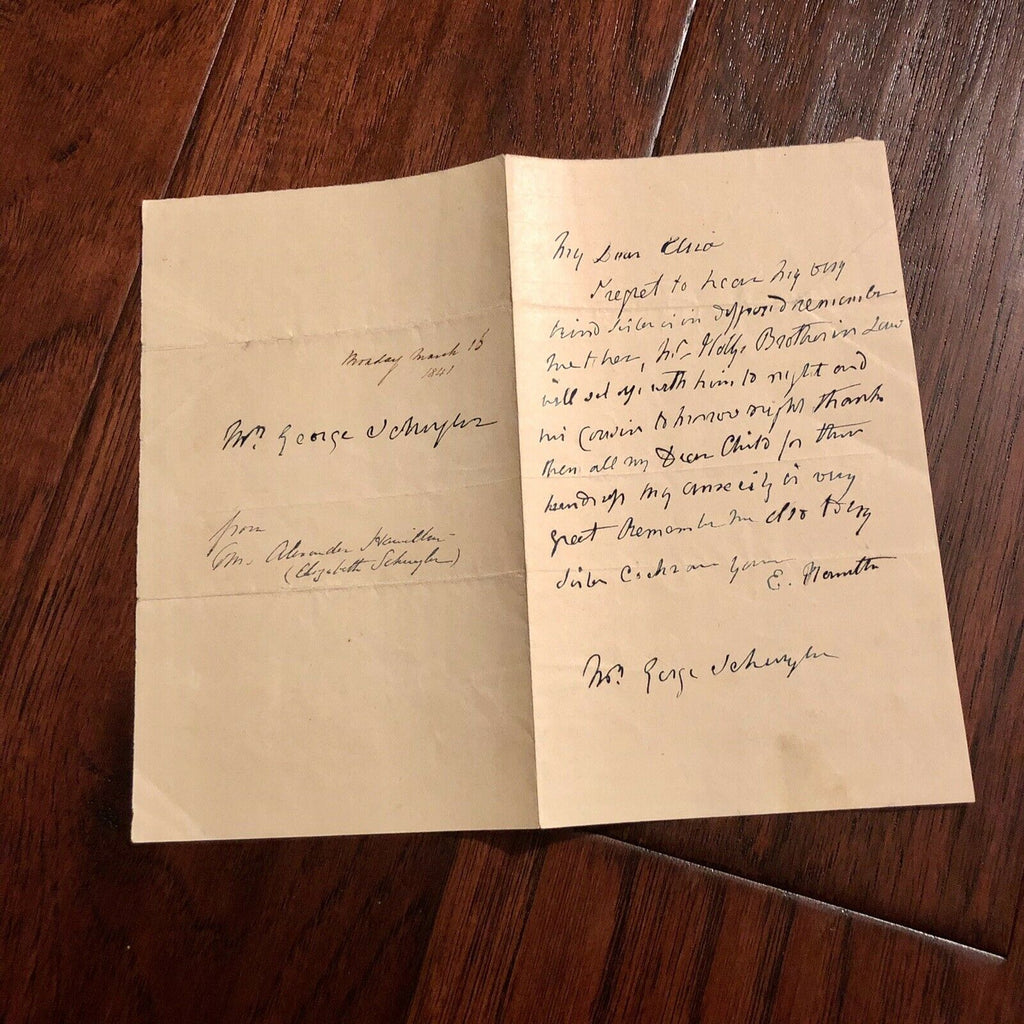 Monday March 15
1841
Mrs. George Schuyler
from
Mrs. Alexander Hamilton-
(Elizabeth Schuyler)
My Dear Eliza
I regret to hear my very
kind Sister is in remember
me to her, Mr Brother in Law
will set up with him to night and
his Cousin to morrow night thank
them all my Dear Child for their
my anxiety is very
great Remember me also to my
Sister Cochran yours
E. Hamilton
Mrs. George Schuyler